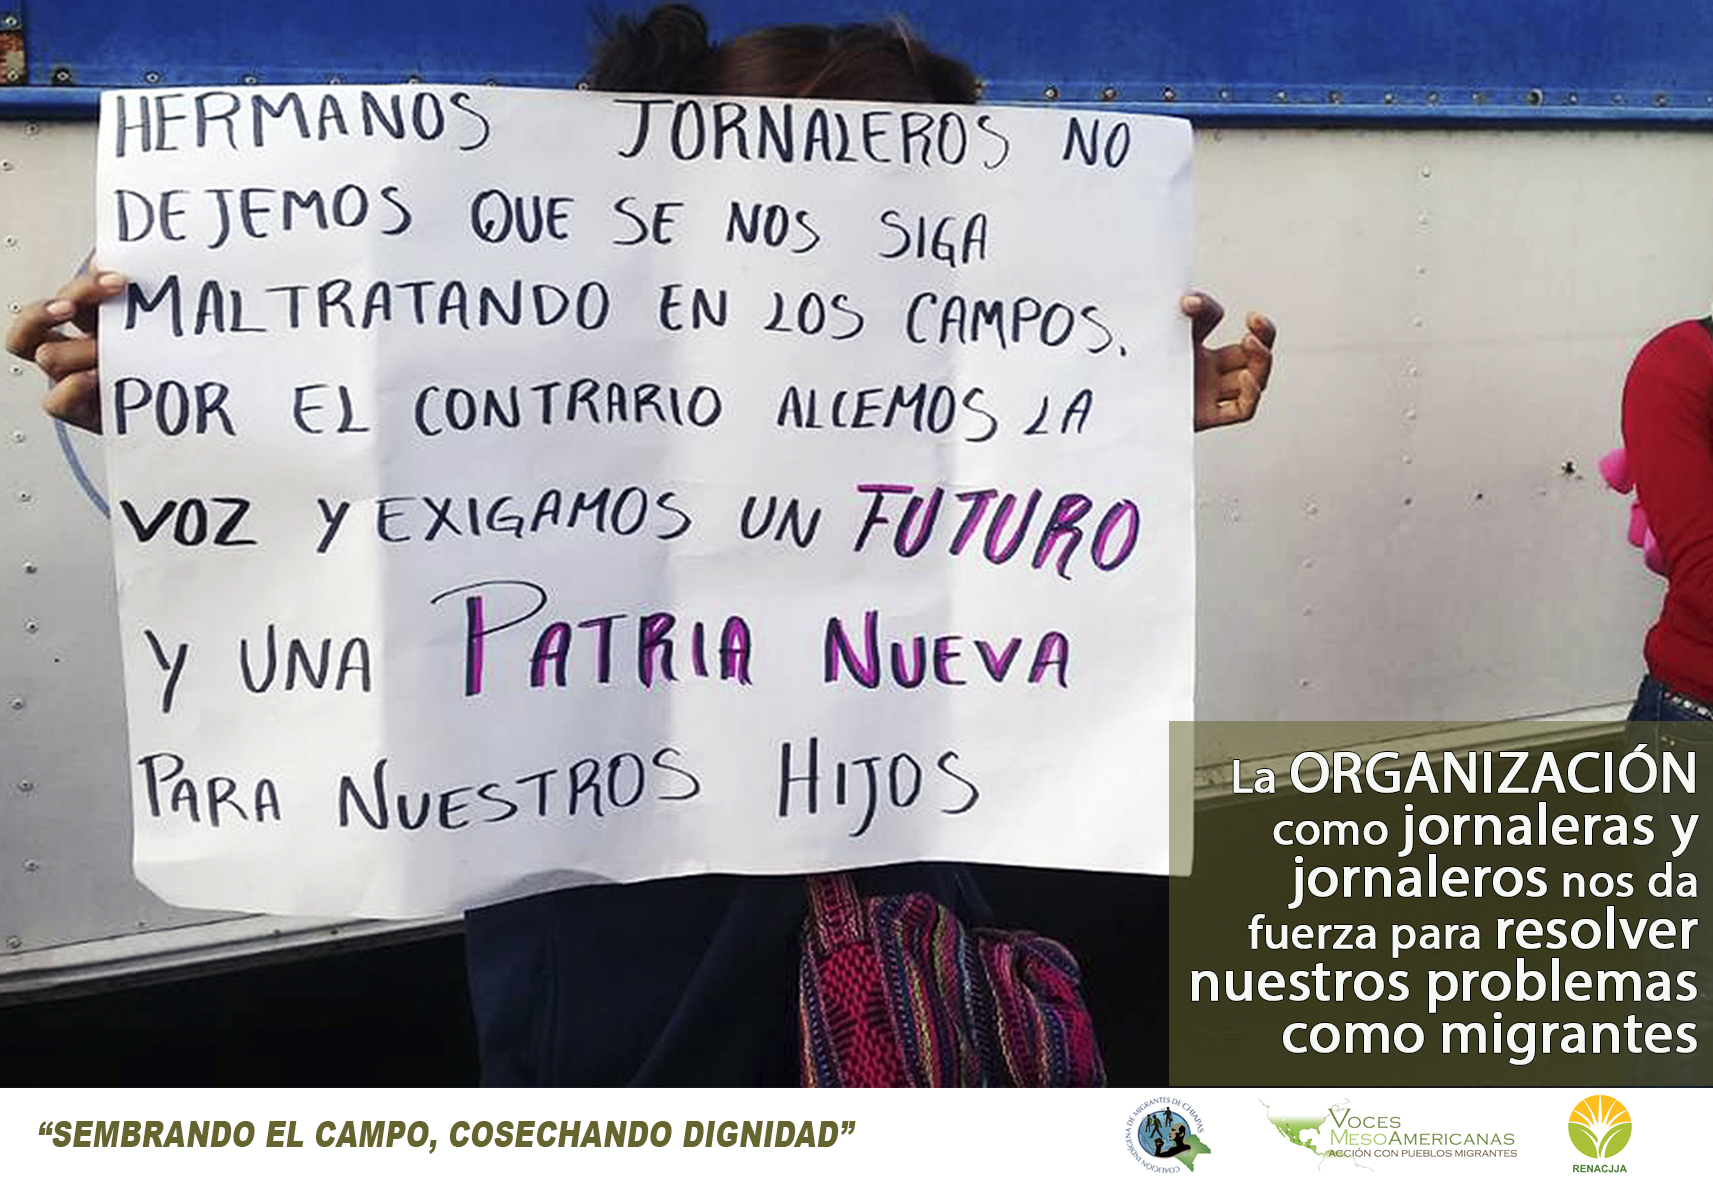 HERMANOS JORNALEROS NO
DEJEMOS QUE SE NOS SIGA
MALTRATANDO EN LOS CAMPOS.
POR EL CONTRARIO ALCEMOS LA
VOZ Y EXIGAMOS UN FUTURO
Y UNA PATRIA NUEVA
PARA NUESTROS HIJOS
La ORGANIZACIÓN
como jornaleras y
jornaleros nos da
fuerza para resolver
nuestros problemas
como migrantes
“SEMBRANDO EL CAMPO, COSECHANDO DIGNIDAD”
COALICIÓN INDÍGENA DE MIGRANTES DE CHIAPAS
VOCES
MESOAMERICANAS
ACCIÓN CON PUEBLOS MIGRANTES
RENACJJA